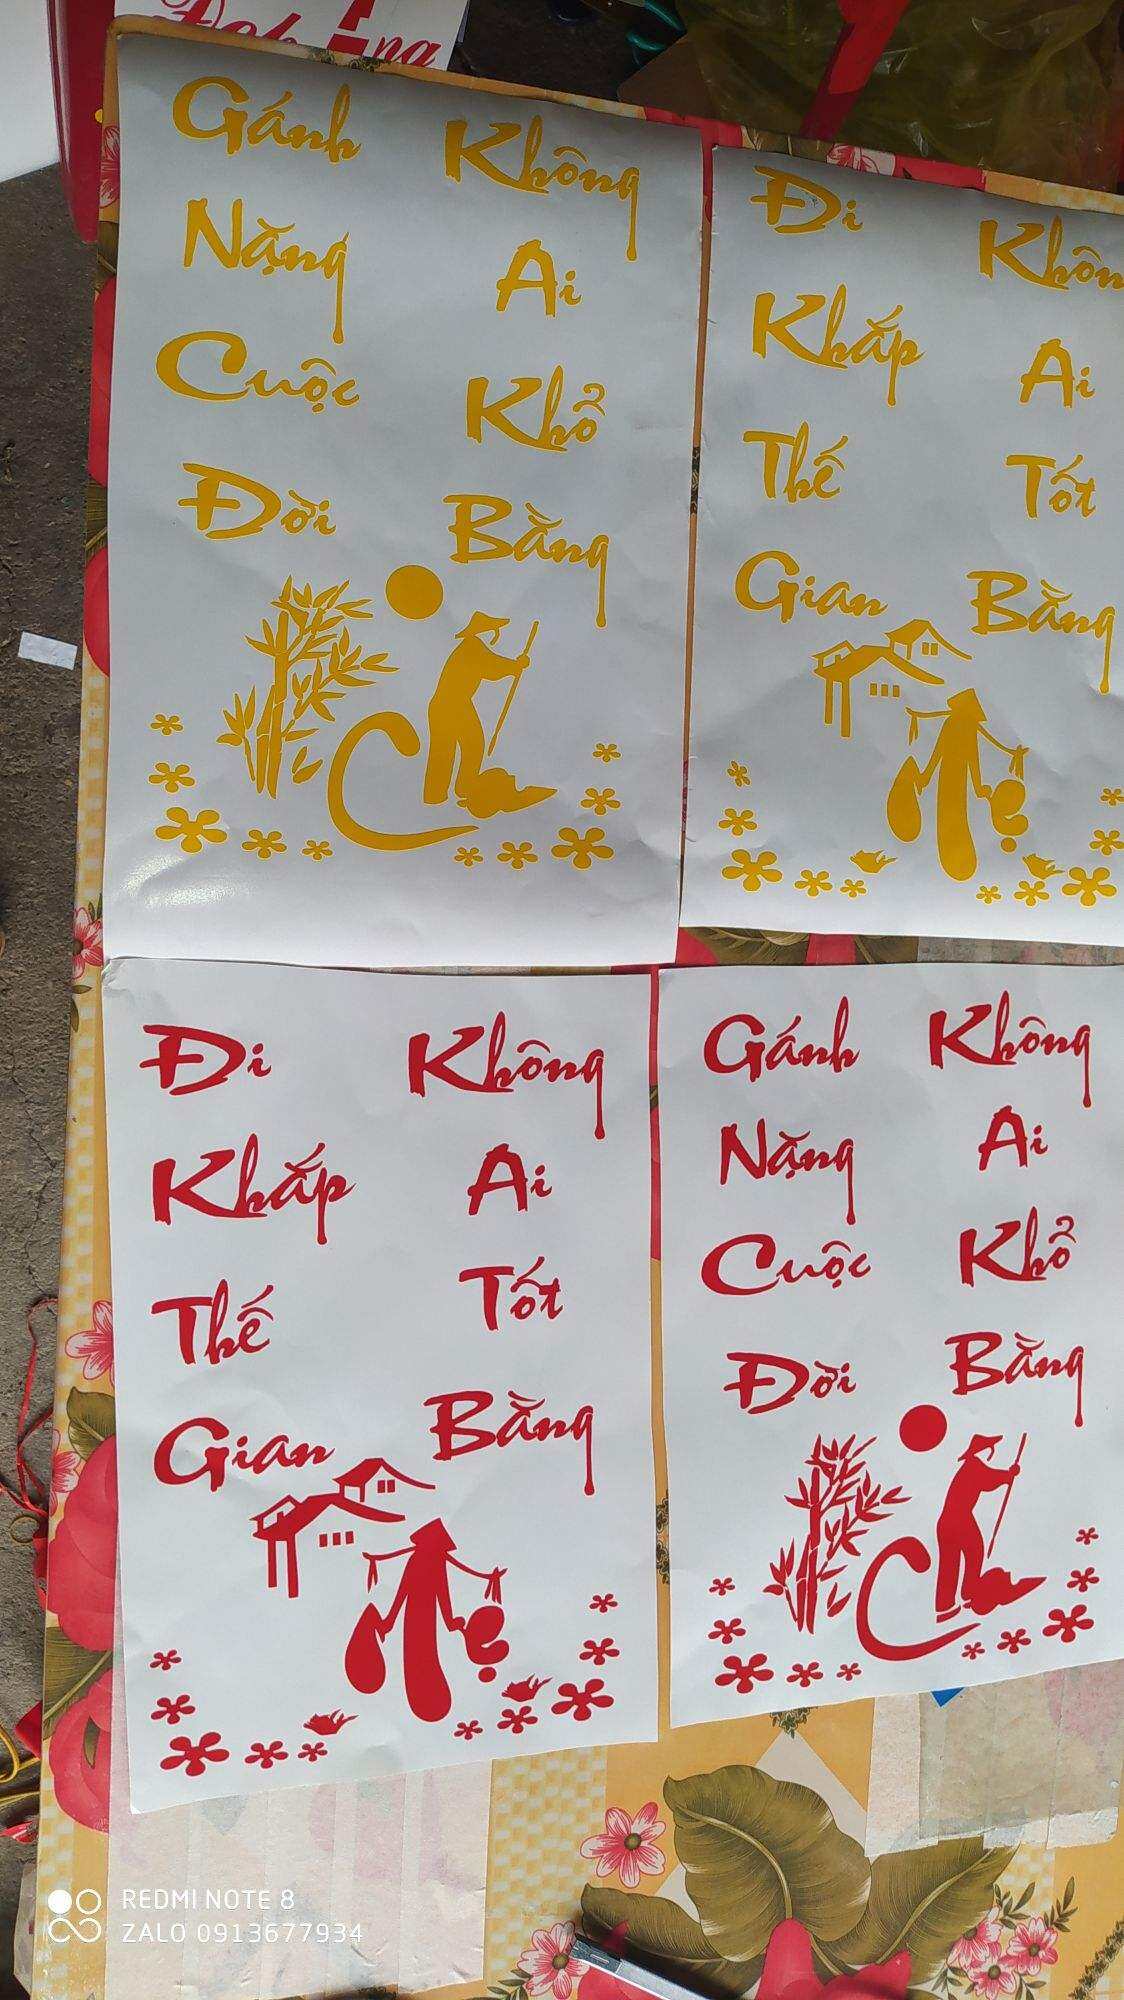 Gánh Không
Nặng Ai
Cuộc Khổ
Đời Bằng
Đi
Khắp Ai
Thế Tốt
Gian Bằng
Đi Không
Khắp Ai
Thế Tốt
Gian Bằng
Gánh Không
Nặng Ai
Cuộc Khổ
Đời Bằng
REDMI NOTE 8
ZALO 0913677934